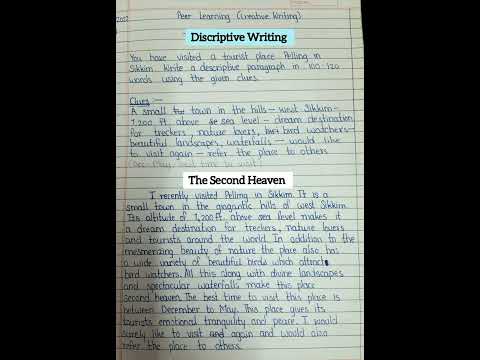 2022
Peer Learning (Creative Writing)
Discriptive Writing
You have visited a tourist place Pelling in
Sikkim. Write a descriptive paragraph in 100-120
words using the given clues.
Clues :—
A small town in the hills – west Sikkim –
7,200 ft above sea level – dream destination
for treckers, nature lovers, bird watchers –
beautiful landscapes, waterfalls – would like
to visit again – refer the place to others
(Dec – May best time to visit
The Second Heaven
I recently visited Pelling in Sikkim. It is a
small town in the gigantic hills of west Sikkim.
Its altitude of 7,200 Ft. above sea level makes it
a dream destination for treckers, nature lovers
and tourists around the world. In addition to the
mesmerizing beauty of nature the place also has
a wide variety of beautiful birds which attract
bird watchers. All this along with divine landscapes
and spectacular waterfalls make this place
second heaven. The best time to visit this place is
between December to May. This place gives its
tourists emotional tranquility and peace. I would
surely like to visit again and would also
refer the place to others.